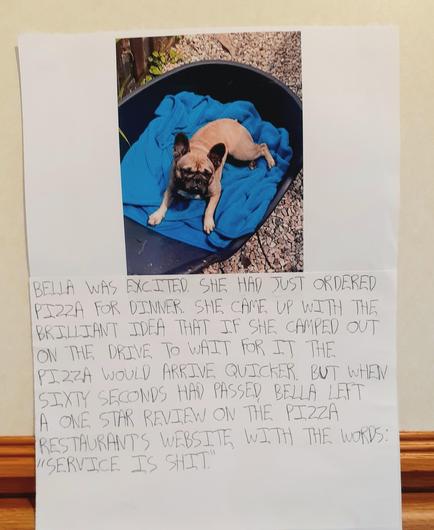 BELLA WAS EXCITED. SHE HAD JUST ORDERED
PIZZA FOR DINNER. SHE CAME UP WITH THE
BRILLIANT IDEA THAT IF SHE CAMPED OUT
ON THE DRIVE TO WAIT FOR IT THE
PIZZA WOULD ARRIVE QUICKER. BUT WHEN
SIXTY SECONDS HAD PASSED, BELLA LEFT
A ONE STAR REVIEW ON THE PIZZA
RESTAURANTS WEBSITE, WITH THE WORDS:
"SERVICE IS SHIT."